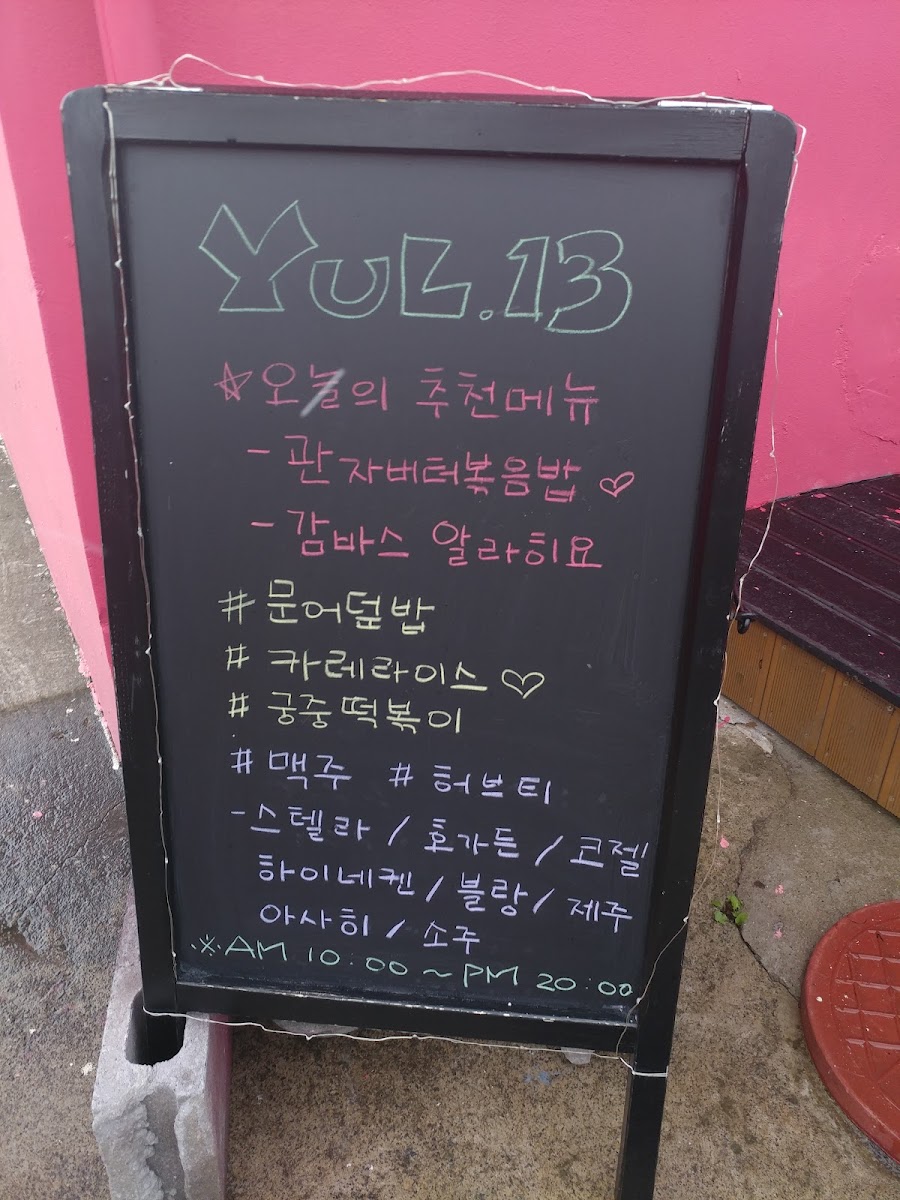 YUL.13
☆오늘의 추천메뉴
-관자버터볶음밥 ♡
-감바스 알라히요
#문어덮밥
#카레라이스 ♡
#궁중떡볶이
#맥주 #허브티
-스텔라/호가든/코젤
하이네켄/블랑/제주
아사히/소주
※AM 10:00~PM 20:00